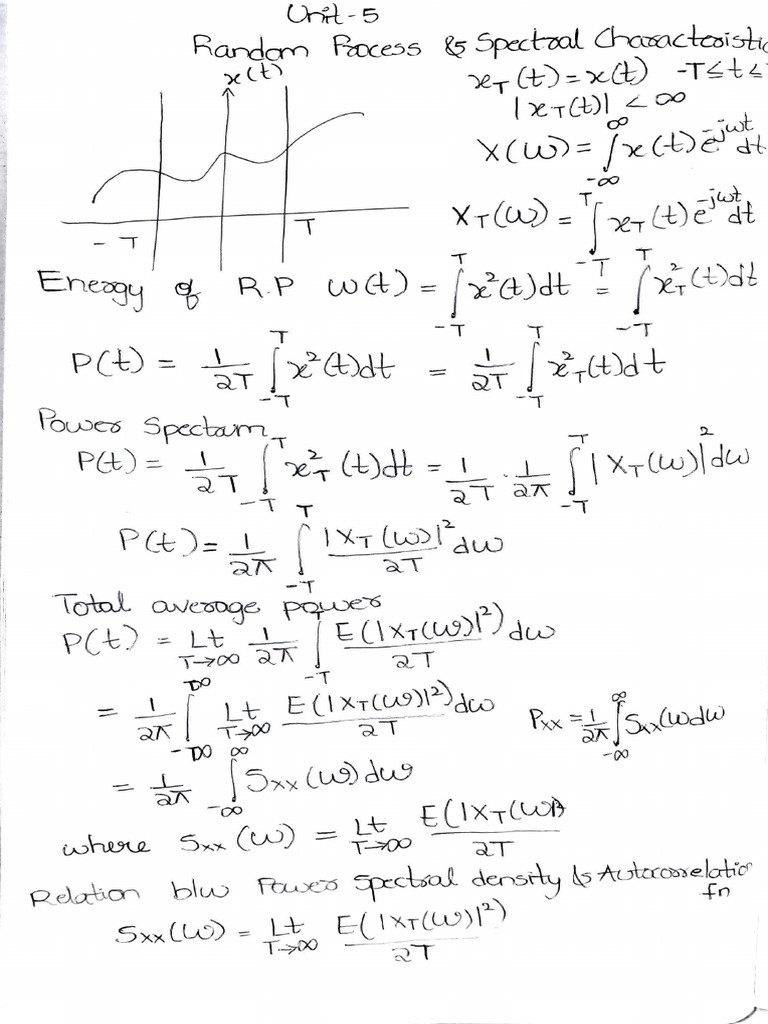 Unit-5
Random Process & Spectral Characteristic
x(t)
x_T(t) = x(t) -T≤t≤
|x_T(t)| < ∞
X(ω) = ∫_{-∞}^{∞} x(t) e^{-jωt} dt
X_T(ω) = ∫_{-T}^{T} x_T(t) e^{-jωt} dt
-T T
Energy of R.P ω(t) = ∫_{-T}^{T} x²(t)dt = ∫_{-T}^{T} x_T²(t)dt
P(t) = 1/2T ∫_{-T}^{T} x²(t)dt = 1/2T ∫_{-T}^{T} x_T²(t)dt
Power Spectrum
P(t) = 1/2T ∫_{-T}^{T} x_T²(t)dt = 1/2T · 1/2π ∫_{-T}^{T} |X_T(ω)|² dω
P(t) = 1/2π ∫_{-T}^{T} |X_T(ω)|²/2T dω
Total average power
P(t) = Lt_{T→∞} 1/2π ∫_{-T}^{T} E(|X_T(ω)|²)/2T dω
= 1/2π ∫_{-∞}^{∞} Lt_{T→∞} E(|X_T(ω)|²)/2T dω P_XX = 1/2π ∫_{-∞}^{∞} S_XX(ω dω
= 1/2π ∫_{-∞}^{∞} S_XX(ω) dω
where S_XX(ω) = Lt_{T→∞} E(|X_T(ω)|²/2T
Relation b/w Power Spectral density & Autocorrelation
fn
S_XX(ω) = Lt_{T→∞} E(|X_T(ω)|²)/2T